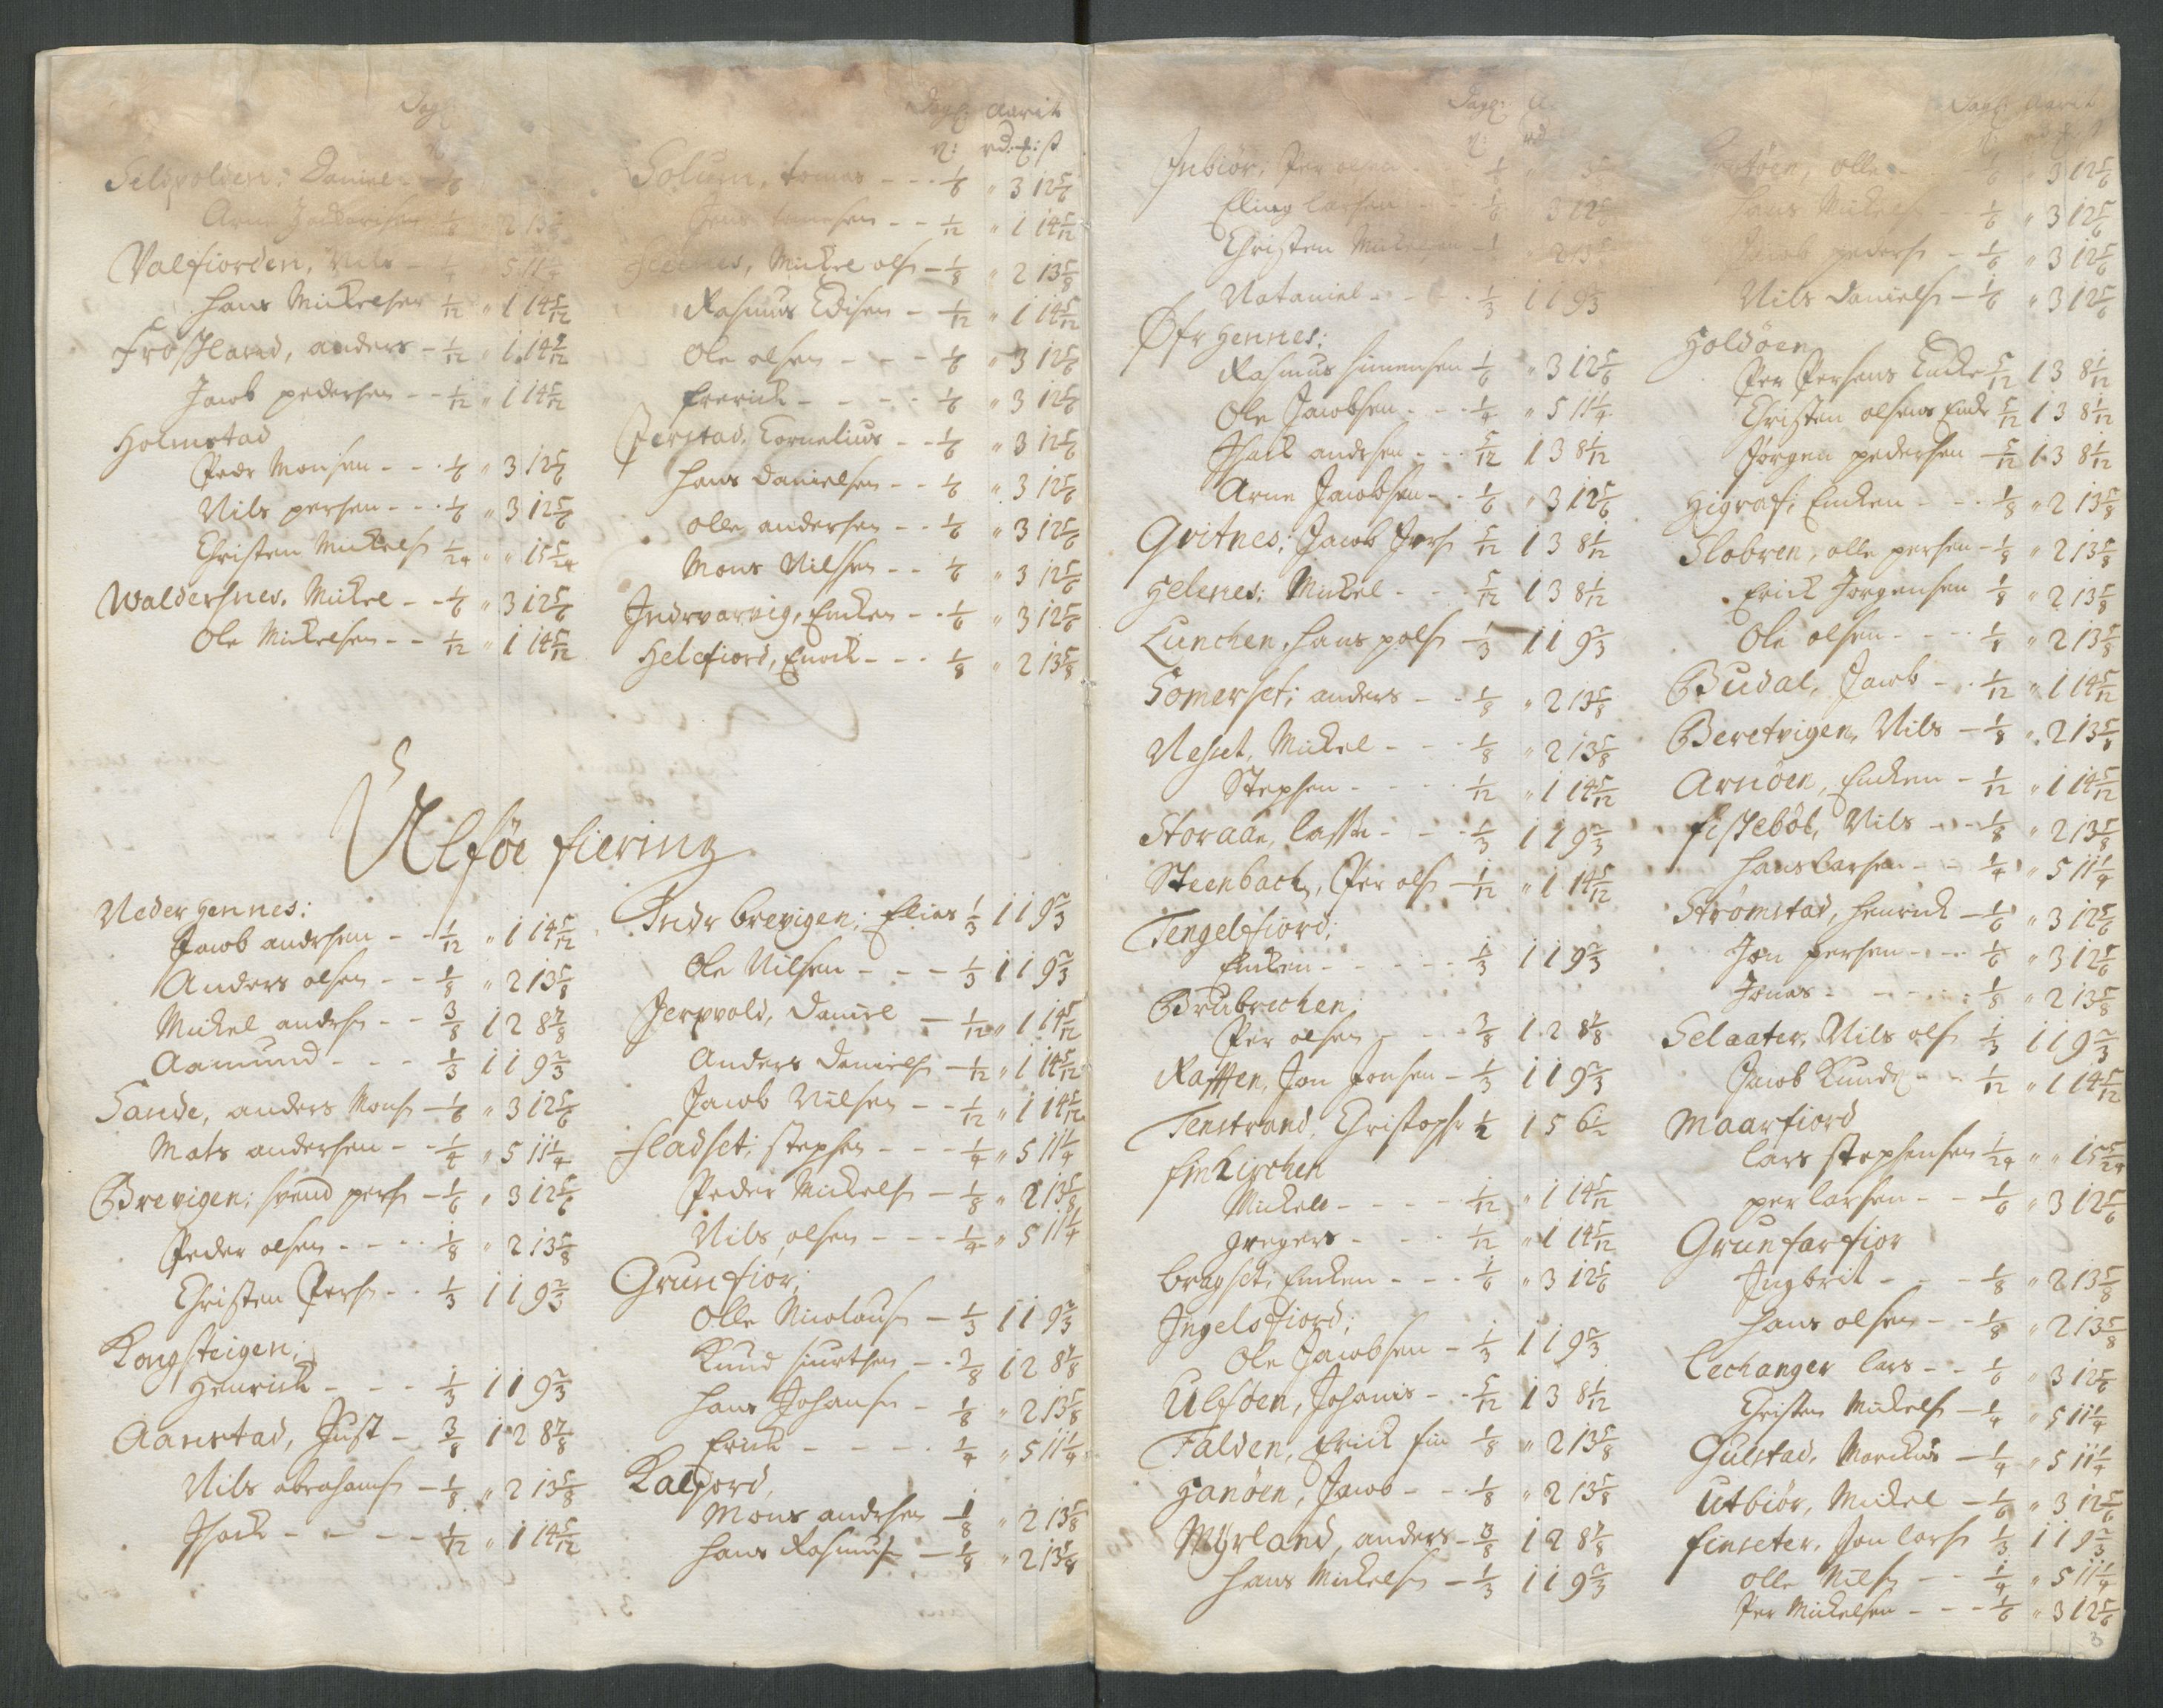 Dagl:
Seldpolden: Daniel - 1/6
Arne 1/8 2 13 5/8
Valfiorden, Nils - 1/4 5 11 1/4
Hans Mickelsen 1/12 " 1 14 5/12
Froskland, anders - 1/12 " 1 14 5/12
Jacob pedersen - - 1/12 " 1 14 5/12
Holmstad
Peder Monsen - - - 1/6 " 3 12 5/6
Nils persen - - - 1/6 " 3 12 5/6
Christen Mickels 1/24 " " 15 5/24
Waldersnes. Mickel - - 1/6 " 3 12 5/6
Ole Mickelsen - - 1/12 " 1 14 5/12
Dagl: Aarit
v: rd: : ß
Solum, tomas - - - 1/6 " 3 12 5/6
Jens tomesen - - 1/12 " 1 14 5/12
Mickel ols - 1/8 " 2 13 5/8
Rasmus Edisen - 1/12 " 1 14 5/12
Ole olsen - - - 1/6 " 3 12 5/6
Frerick - - - - 1/6 " 3 12 5/6
Jerstad, Cornelius - - 1/6 " 3 12 5/6
Hans Danielsen - - 1/6 " 3 12 5/6
Olle andersen - - 1/6 " 3 12 5/6
Mons Nilssen - - 1/6 " 3 12 5/6
Indrvarvig, Encken - - 1/6 " 3 12 5/6
Helefiord, Enock - - - 1/8 " 2 13 5/8
Ulföe fiering
Neder Hennes:
Jacob andrsen - - 1/12 " 1 14 5/12
Anders olsen - - 1/8 " 2 13 5/8
Mickel andrs - - 3/8 1 2 8 7/8
Aamund - - - 1/3 1 1 9 2/3
Sande, anders Mons - 1/6 " 3 12 5/6
Mats andersen - - 1/4 " 5 11 1/4
Brevigen: svend pers - 1/6 " 3 12 5/6
Peder olsen - - - 1/8 " 2 13 5/8
Christen Pers - - 1/3 1 1 9 2/3
Kongsteigen:
Henrick - - - 1/3 1 1 9 2/3
Aanstad, Just - 3/8 1 2 8 7/8
Nils abrahams - 1/8 " 2 13 5/8
Isack - - - - 1/12 " 1 14 5/12
Indr brevigen: Elias 1/3 1 1 9 2/3
Ole Nilsen - - - 1/3 1 1 9 2/3
Jerpvold, Daniel - 1/12 " 1 14 5/12
Anders Daniels - 1/12 " 1 14 5/12
Jacob Nilsen - - 1/12 " 1 14 5/12
Fladset: stephen - - - 1/4 " 5 11 1/4
Peder Mickels - 1/8 " 2 13 5/8
Nils olsen - - - 1/4 " 5 11 1/4
Grunfior:
Olle Nicolaus - 1/3 1 1 9 2/3
Knud siurtsen - - 3/8 1 2 8 7/8
Hans Johans - 1/8 " 2 13 5/8
Erick - - - - 1/4 " 5 11 1/4
Kalfiord,
Mons andrsen - 1/8 " 2 13 5/8
Hans Rasmus - 1/8 " 2 13 5/8
Dagl:
Inbiör: Per olsen 1/8
Elling larsen - - 1/6 3 12 5/6
Christen 2 13 5/8
Nataniel - - - - 1/3 1 1 9 2/3
Öfr Hennes:
Rasmus simensen 1/6 " 3 12 5/6
Ole Jacobsen - - - 1/4 " 5 11 1/4
Isack andrsen - - 5/12 1 3 8 1/12
Arne Jacobsen - - 1/6 " 3 12 5/6
Qvitnes: Jacob Ivers 5/12 1 3 8 1/12
Helenes: Mickel - - - 5/12 1 3 8 1/12
Lunchen, Hans pols 1/3 1 1 9 2/3
Somerset: anders - - 1/8 " 2 13 5/8
Nesset, Mickel - - - 1/8 " 2 13 5/8
Stephen - - - - 1/12 " 1 14 5/12
Storaae, lasse - - - 1/3 1 1 9 2/3
Steenbach, Per ols - 1/12 " 1 14 5/12
Tengelfiord:
Encken - - - - - 1/3 1 1 9 2/3
Brubrechen:
Per olsen - - - 3/8 1 2 8 7/8
Rafften, Jon Jonsen - 1/3 1 1 9 2/3
Tenstrand, Christophr 1/2 1 5 6 1/2
Finkirchen
Mickel - - - - 1/12 " 1 14 5/12
gregers - - - 1/12 " 1 14 5/12
Brayset: Encken - - - 1/6 " 3 12 5/6
Ingelsfiord:
Ole Jacobsen - 1/3 1 1 9 2/3
Ulföen, Johanis - - 5/12 1 3 8 1/12
Falden, Erick fin 1/8 " 2 13 5/8
Hanöen, Jacob - - - 1/8 " 2 13 5/8
Myrland, anders - 3/8 1 2 8 7/8
Hans Mickels - 1/3 1 1 9 2/3
Dagl: Aarit
olle - 1/6 " 3 12 5/6
Hans Mickels - 1/6 " 3 12 5/6
Jacob peders - 1/6 " 3 12 5/6
Nils Daniels - 1/6 " 3 12 5/6
Holdöen
Per Persens Encke 5/12 1 3 8 1/12
Christen olsens Enck 5/12 1 3 8 1/12
Jörgen pedersen - 5/12 1 3 8 1/12
Higraf: Encken - - - 1/8 " 2 13 5/8
Slobren, olle persen - 1/8 " 2 13 5/8
Erick Jorgensen 1/8 " 2 13 5/8
Ole olsen - - - - 1/8 " 2 13 5/8
Budal, Jacob - - 1/12 " 1 14 5/12
Beretvigen, Nils - 1/8 " 2 13 5/8
Arnöen, Encken - 1/12 " 1 14 5/12
Fiskeböl, Nils - - 1/8 " 2 13 5/8
Hans larsen - - 1/4 " 5 11 1/4
Strömstad, Henrick - 1/6 " 3 12 5/6
Jon persen - - - 1/6 " 3 12 5/6
Jonas - - - - - 1/8 " 2 13 5/8
Selaater, Nils ols 1/3 1 1 9 2/3
Jacob Knuds - - 1/12 " 1 14 5/12
Maarfiord
Lars stephensen 1/24 " " 15 5/24
per larsen - - - 1/6 " 3 12 5/6
Grunfarfior
Ingbrit - - - 1/8 " 2 13 5/8
Hans olsen - - 1/8 " 2 13 5/8
Lechanger lars - - 1/6 " 3 12 5/6
Christen Mickels - 1/4 " 5 11 1/4
Gulstad, Marckus - 1/4 " 5 11 1/4
Utbiör, Mickel - 1/6 " 3 12 5/6
Finseter, Jon lars 1/3 1 1 9 2/3
Olle Nils - - 1/4 " 5 11 1/4
Per Mickelsen - - - 1/6 " 3 12 5/6
3